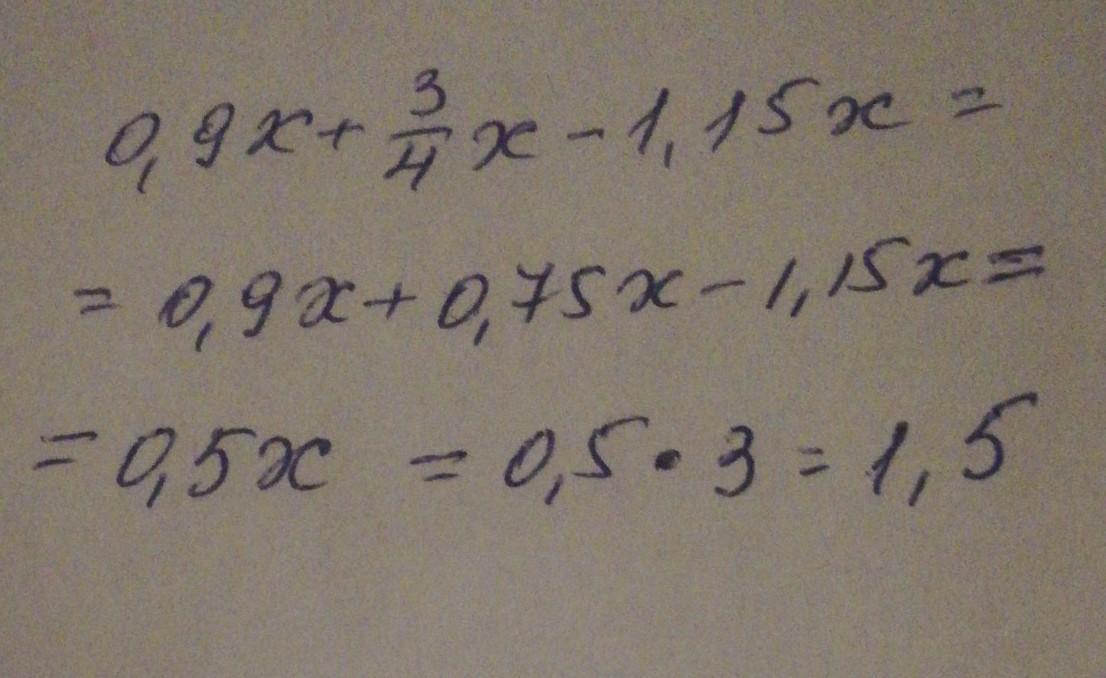 0,9x + 3/4 x - 1,15x =
= 0,9x + 0,75x - 1,15x =
= 0,5x = 0,5 · 3 = 1,5